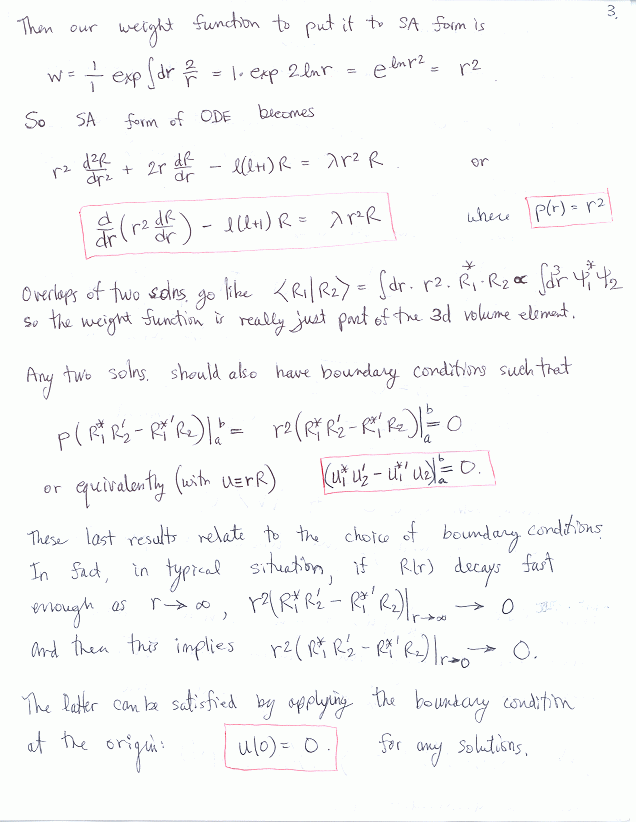 3.
Then our weight function to put it to SA form is
w = 1/1 exp ∫dr 2/r = 1· exp 2lnr = e^lnr² = r²
So SA form of ODE becomes
r² d²R/dr² + 2r dR/dr − l(l+1)R = λr² R. or
d/dr (r² dR/dr) − l(l+1) R = λr²R where p(r) = r²
Overlaps of two solns. go like ⟨R₁|R₂⟩ = ∫dr. r². R₁*·R₂ ∝ ∫d³r ψ₁*ψ₂
so the weight function is really just part of the 3d volume element.
Any two solns. should also have boundary conditions such that
p(R₁* R₂′ − R₁*′R₂)|ₐᵇ = r²(R₁* R₂′ − R₁*′R₂)|ₐᵇ = 0
or equivalently (with u≡rR) (u₁* u₂′ − u₁*′ u₂)|ₐᵇ = 0.
These last results relate to the choice of boundary conditions.
In fact, in typical situation, if R(r) decays fast
enough as r→∞, r²(R₁* R₂′ − R₁*′R₂)|r→∞ → 0
and then this implies r²(R₁* R₂′ − R₁*′R₂)|r→0 → 0.
The latter can be satisfied by applying the boundary condition
at the origin: u(0) = 0. for any solutions.